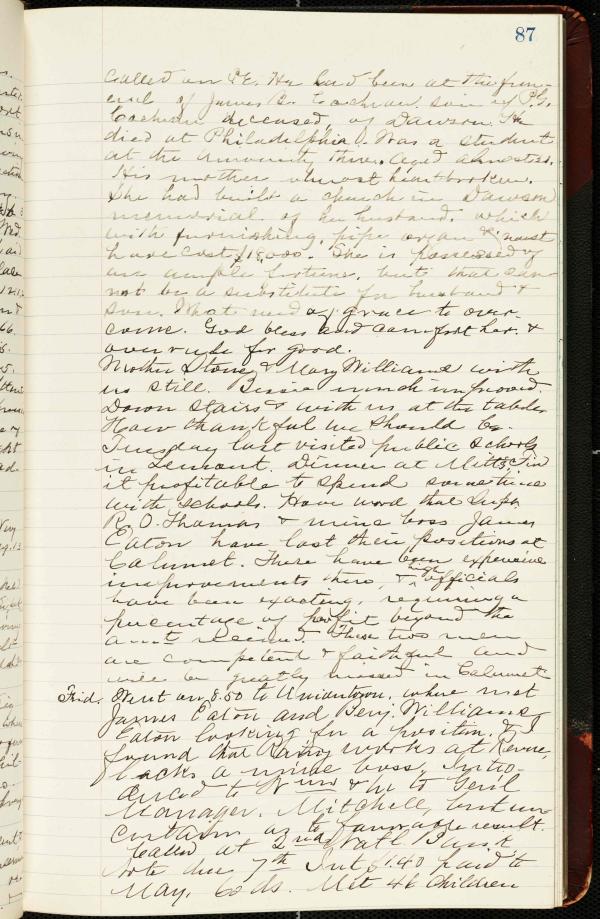 87
Called on & E. He had been at the fun-
eral of James C. Cochran, son of P. G.
Cochran deceased, of Dawson. He
died at Philadelphia. Was a student
at the University there. Aged almost 21.
His mother almost heartbroken.
She had built a church in Dawson
memorial of her husband, which
with furnishing, pipe organ & must
have cost $18,000. She is possessed of
an ample fortune, but that can-
not be a substitute for husband &
son. What need of grace to over-
come. God bless and comfort her. &
overrule for good.
Mother Stone & Mary Williams with
us still. Bessie much improved.
Down stairs & with us at the table.
How thankful we should be.
Tuesday last visited public schools
in Lemont. Dinner at Mitts. Find
it profitable to spend sometime
with schools. Have word that Supt.
R. O. Thomas & mine boss James
Eaton have lost their positions at
Calumet. There have been expensive
improvements there, & high officials
have been exacting, requiring a
percentage of profit beyond the
amt received. These two men
are competent & faithful and
will be greatly missed in Calumet.
Frid. Went on 8.50 to Uniontown, where met
James Eaton and Benj. Williams,
Eaton looking for a position. & I
found that works at Revere,
lacks a mine boss. Intro-
duced to & he to Genl
Manager, Mitchell, but un-
certain as to favorable result.
Called at 2nd Natl Bank
note due 7th Int $1.40 paid to
May, 60 ds. Met 46 children